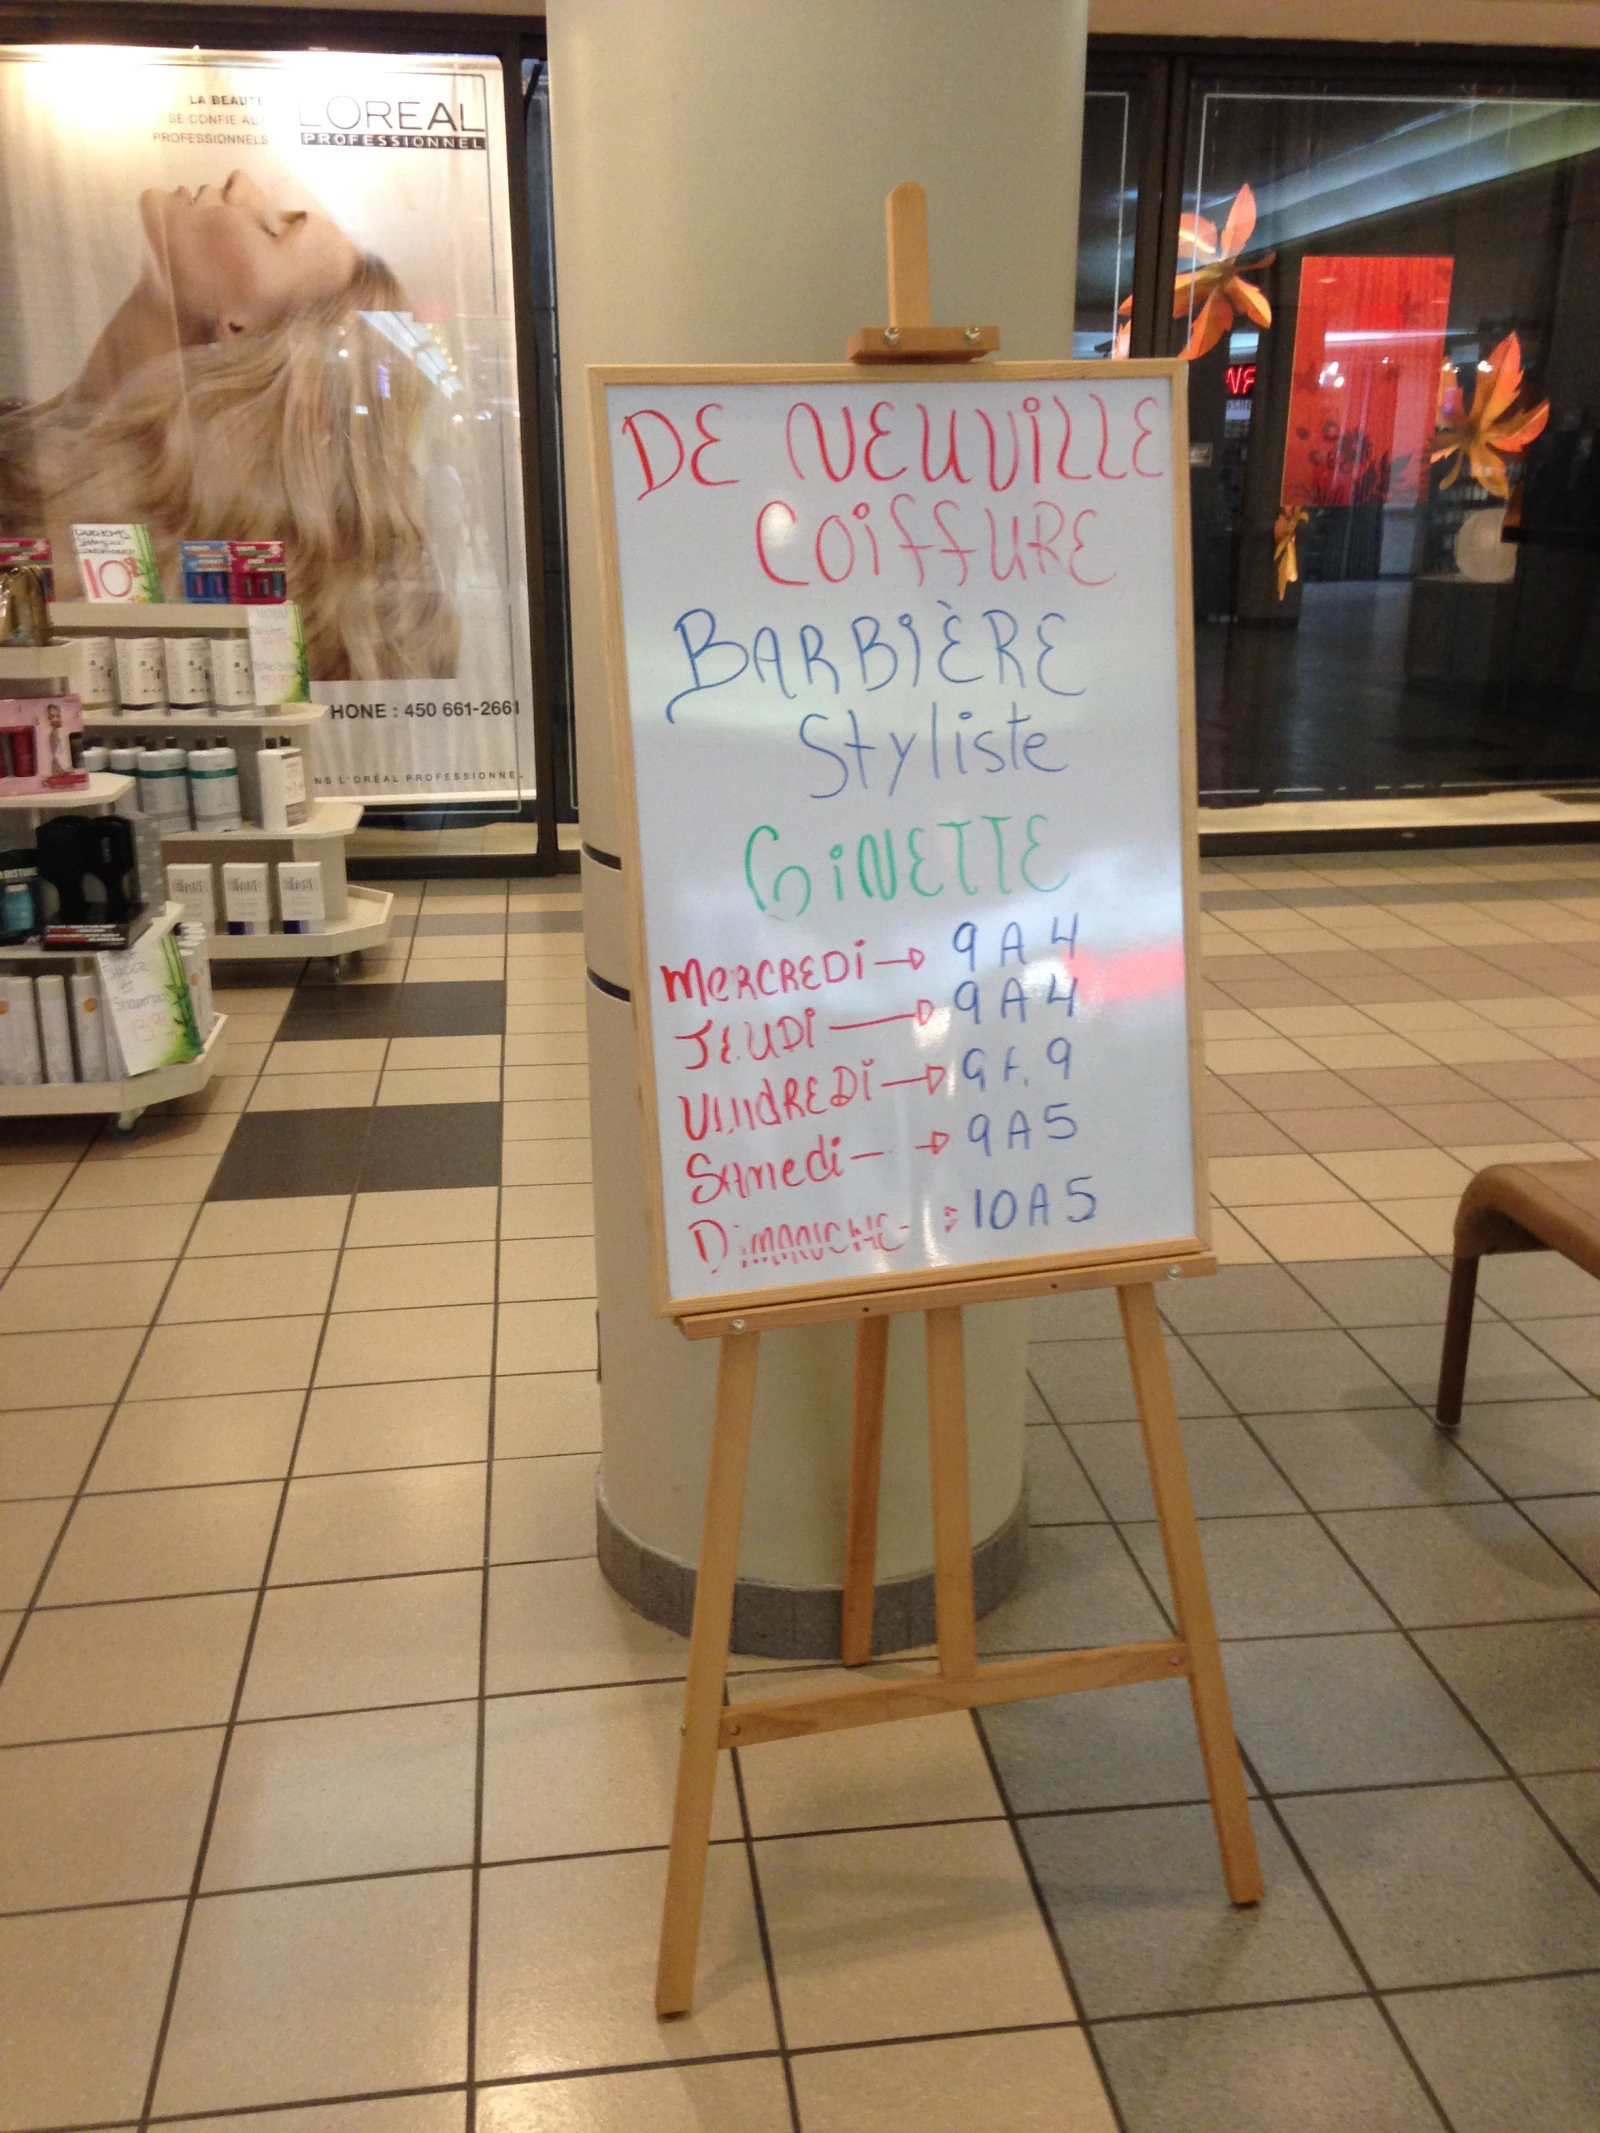 LA BEAUTE
SE CONFIE AUX
PROFESSIONNELS
L'OREAL
PROFESSIONNEL
HONE : 450 661-2661
NS L'ORÉAL PROFESSIONNEL
10
DE NEUVILLE
COIFFURE
BARBIÈRE
Styliste
GINETTE
MERCREDI → 9 A 4
JEUDI → 9 A 4
VENDREDI → 9 A 9
Samedi → 9 A 5
DIMANCHE 10 A 5